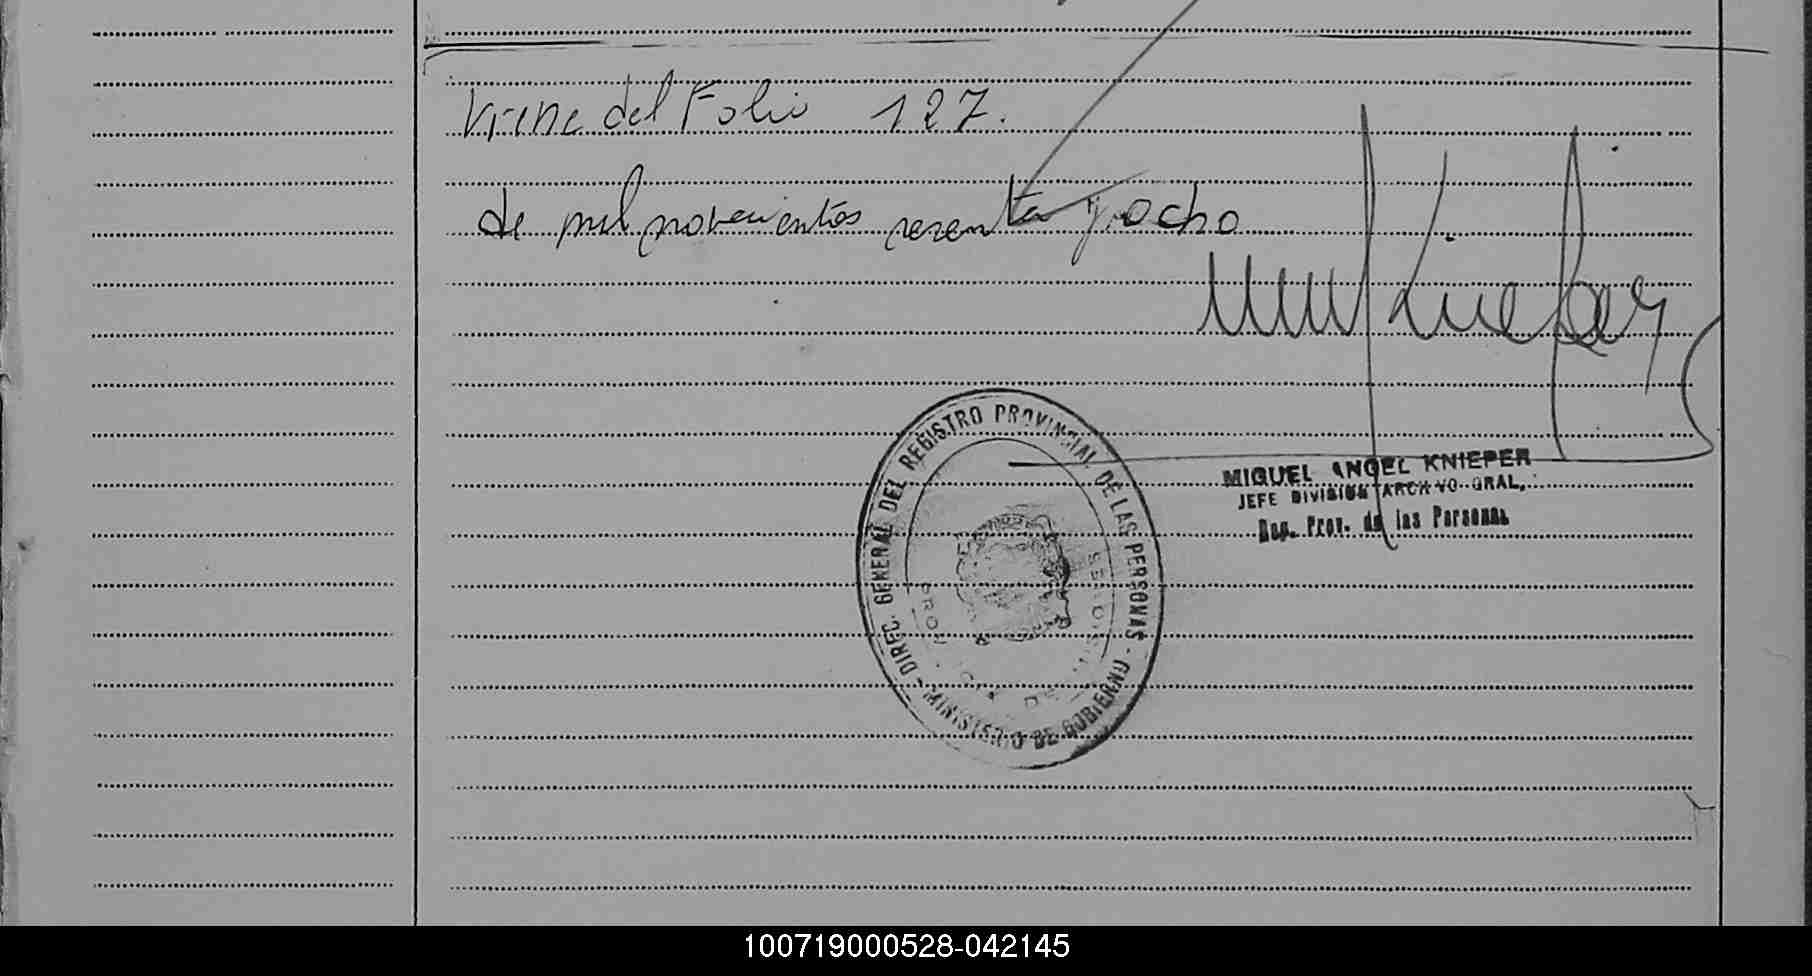 Viene del Folio 127.
de mil novecientos sesenta y ocho
MIGUEL ANGEL KNIEPER
JEFE DIVISION ARCHIVO GRAL.
Reg. Prov. de las Personas
DIREC. GENERAL DEL REGISTRO PROVINCIAL DE LAS PERSONAS - MINISTERIO DE GOBIERNO -
100719000528-042145